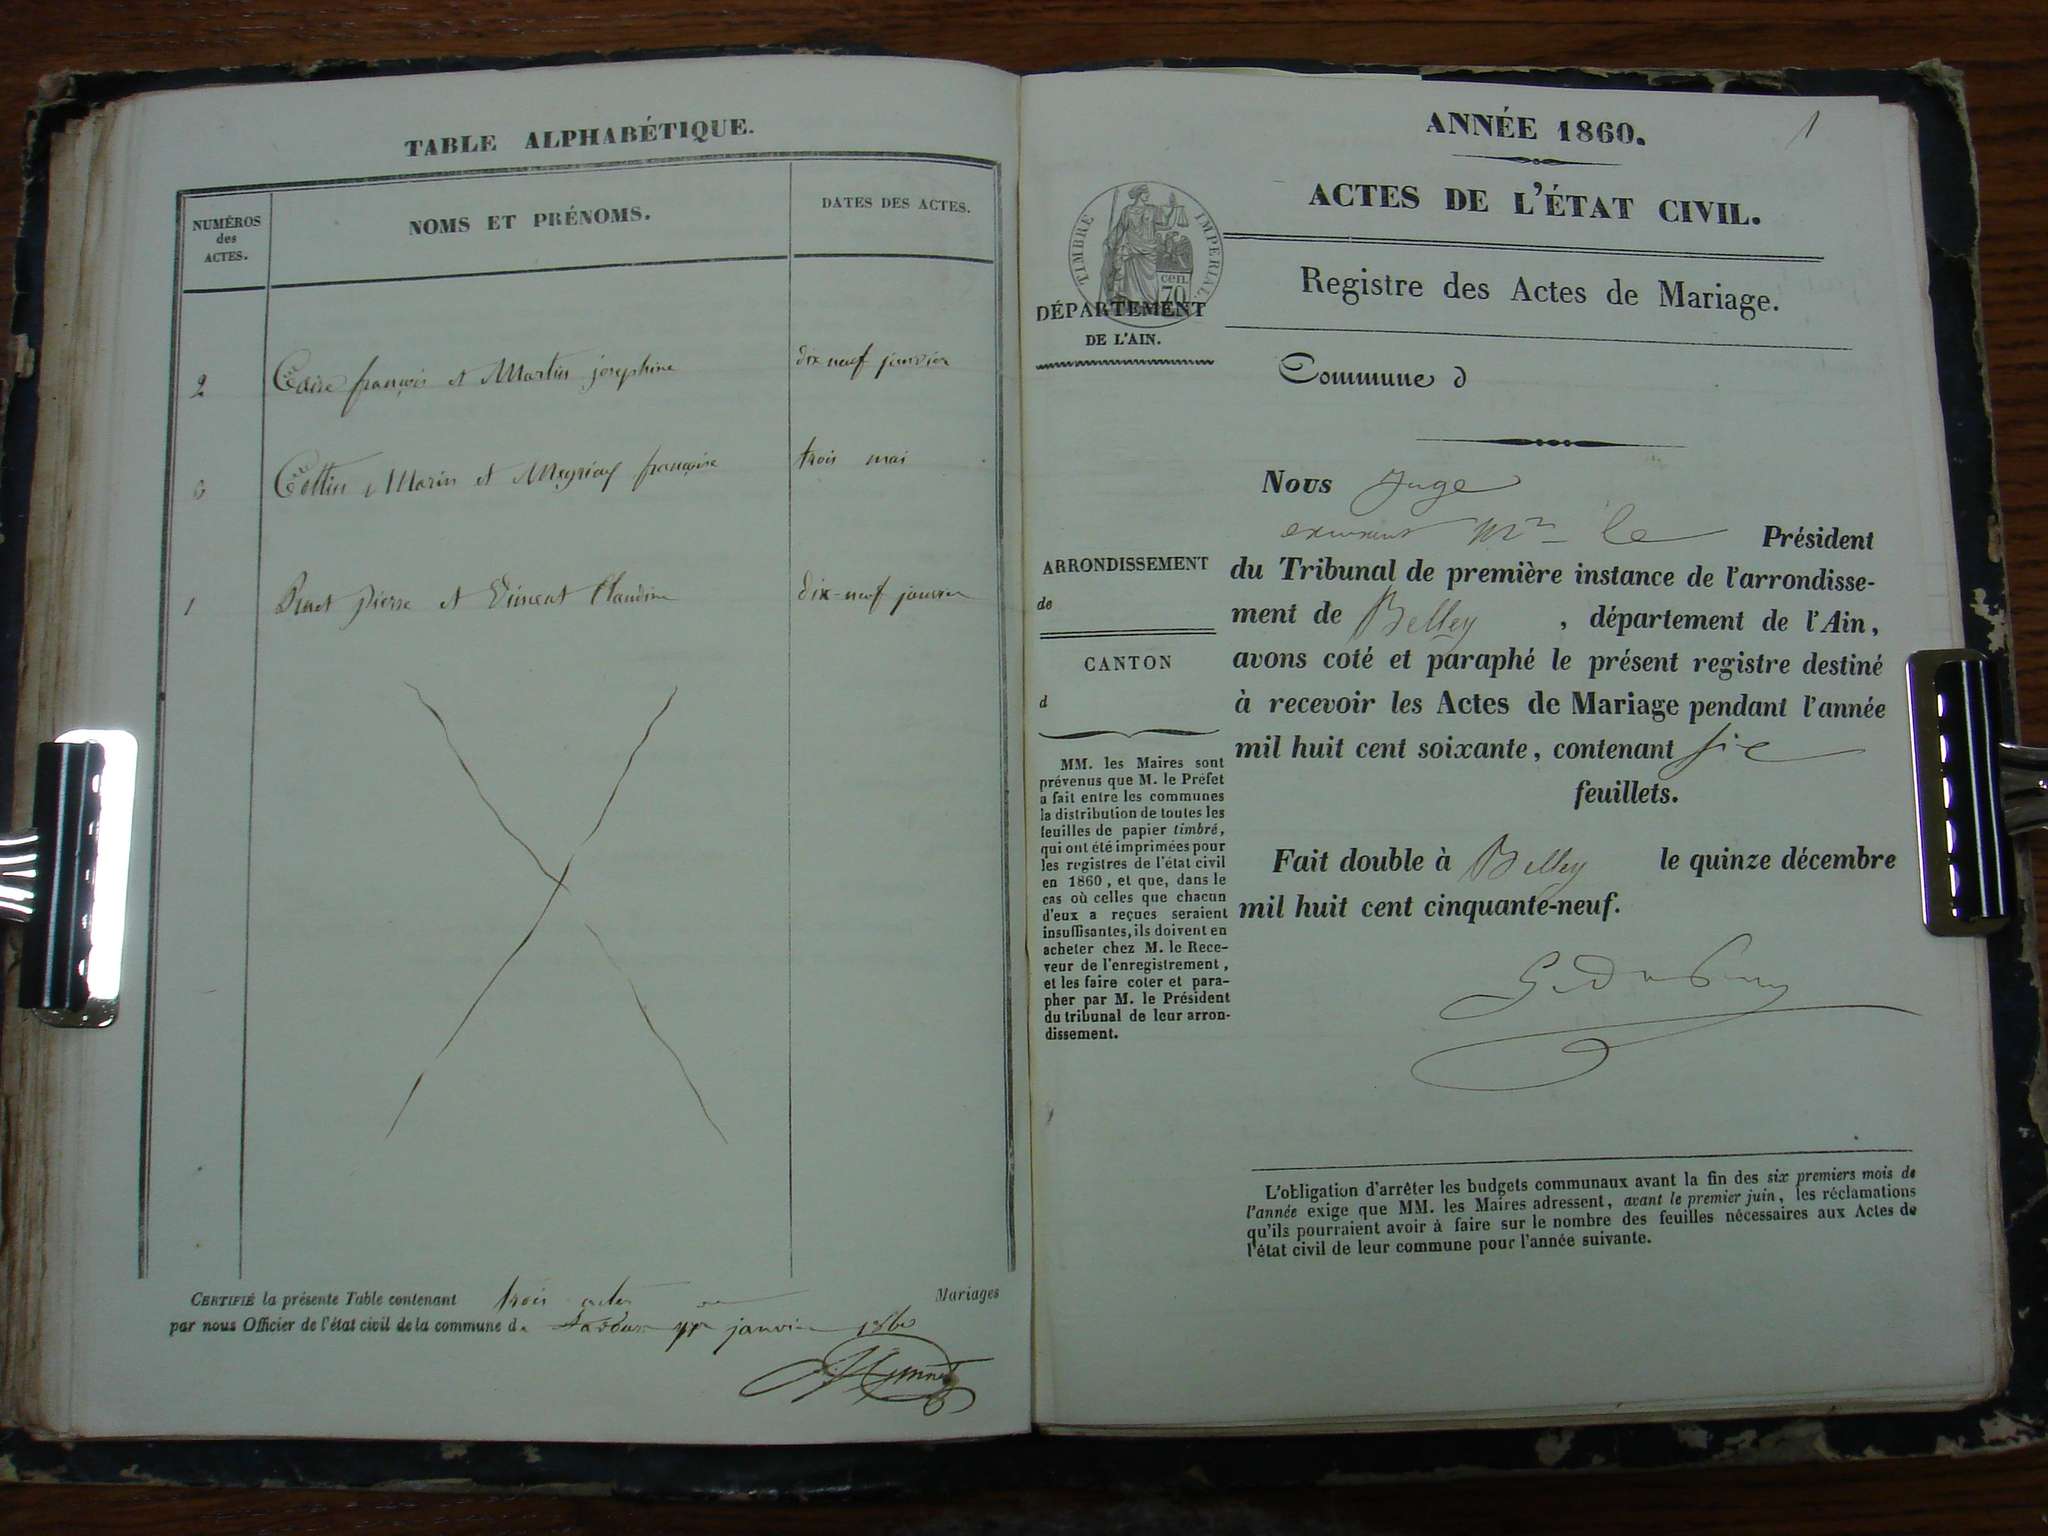 TABLE ALPHABÉTIQUE.
NUMÉROS
des
ACTES.
NOMS ET PRÉNOMS.
DATES DES ACTES.
2 françois et Martin josephine dix neuf janvier
Marin et françoise trois mai
1 pierre et Vincent Claudine dix-neuf janvier
CERTIFIÉ la présente Table contenant trois actes Mariages
par nous Officier de l'état civil de la commune d janvier 1860
1
ANNÉE 1860.
ACTES DE L'ÉTAT CIVIL.
Registre des Actes de Mariage.
TIMBRE IMPERIAL
cen.
70
DÉPARTEMENT
DE L'AIN.
Commune d
ARRONDISSEMENT
de
CANTON
d
MM. les Maires sont
prévenus que M. le Préfet
a fait entre les communes
la distribution de toutes les
feuilles de papier timbré,
qui ont été imprimées pour
les registres de l'état civil
en 1860, et que, dans le
cas où celles que chacun
d'eux a reçues seraient
insuffisantes, ils doivent en
acheter chez M. le Rece-
veur de l'enregistrement,
et les faire coter et para-
pher par M. le Président
du tribunal de leur arron-
dissement.
Nous Juge
Mr le Président
du Tribunal de première instance de l'arrondisse-
ment de Belley, département de l'Ain,
avons coté et paraphé le présent registre destiné
à recevoir les Actes de Mariage pendant l'année
mil huit cent soixante, contenant six
feuillets.
Fait double à Belley le quinze décembre
mil huit cent cinquante-neuf.
L'obligation d'arrêter les budgets communaux avant la fin des six premiers mois de
l'année exige que MM. les Maires adressent, avant le premier juin, les réclamations
qu'ils pourraient avoir à faire sur le nombre des feuilles nécessaires aux Actes de
l'état civil de leur commune pour l'année suivante.